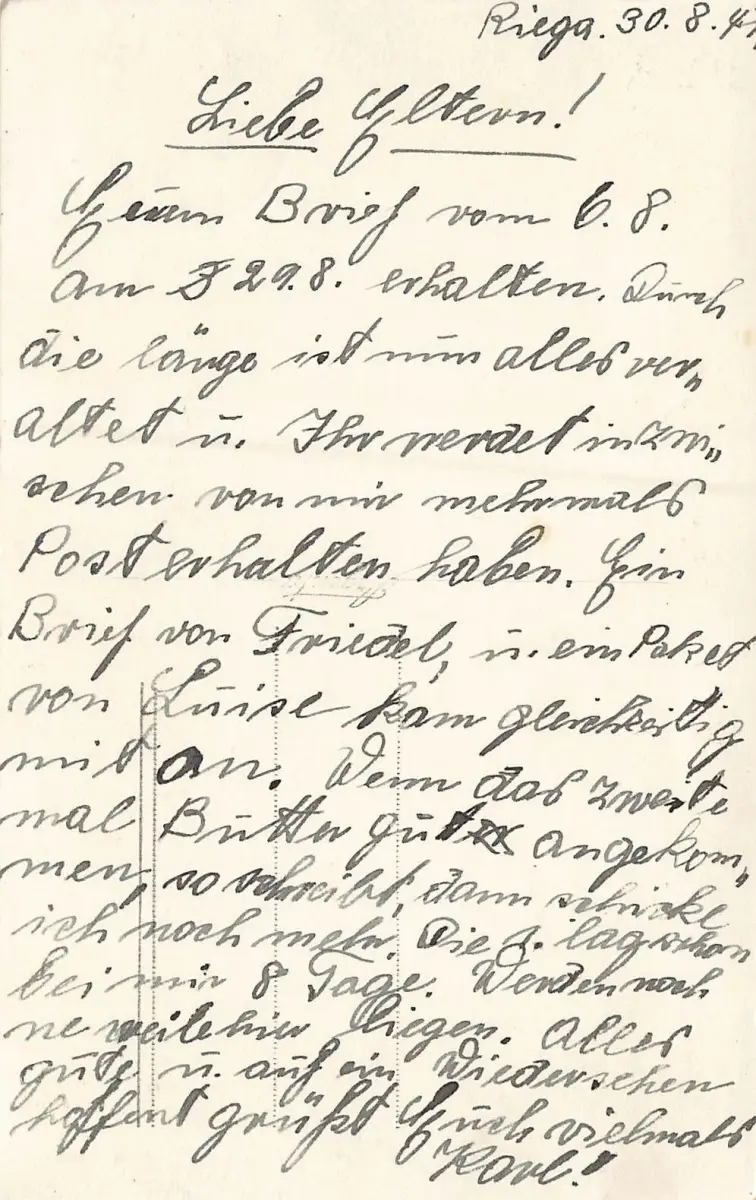 Riega. 30. 8. 41
Liebe Eltern!
Euern Brief vom 6. 8.
am 29. 8. erhalten. Durch
die länge ist nun alles ver„
altet u. Ihr werdet inzwi„
schen von mir mehrmals
Post erhalten haben. Ein
Brief von Friedel, u. ein Paket
von Luise kam gleichzeitig
mit an. Wenn das zweite
mal Butter gut angekom„
men, so schreibt, dann schicke
ich noch mehr. Die 1. lag schon
bei mir 8 Tage. Werden noch
ne weile hier liegen. Alles
gute u. auf ein Wiedersehen
hoffent grüßt Euch vielmals
Karl!"